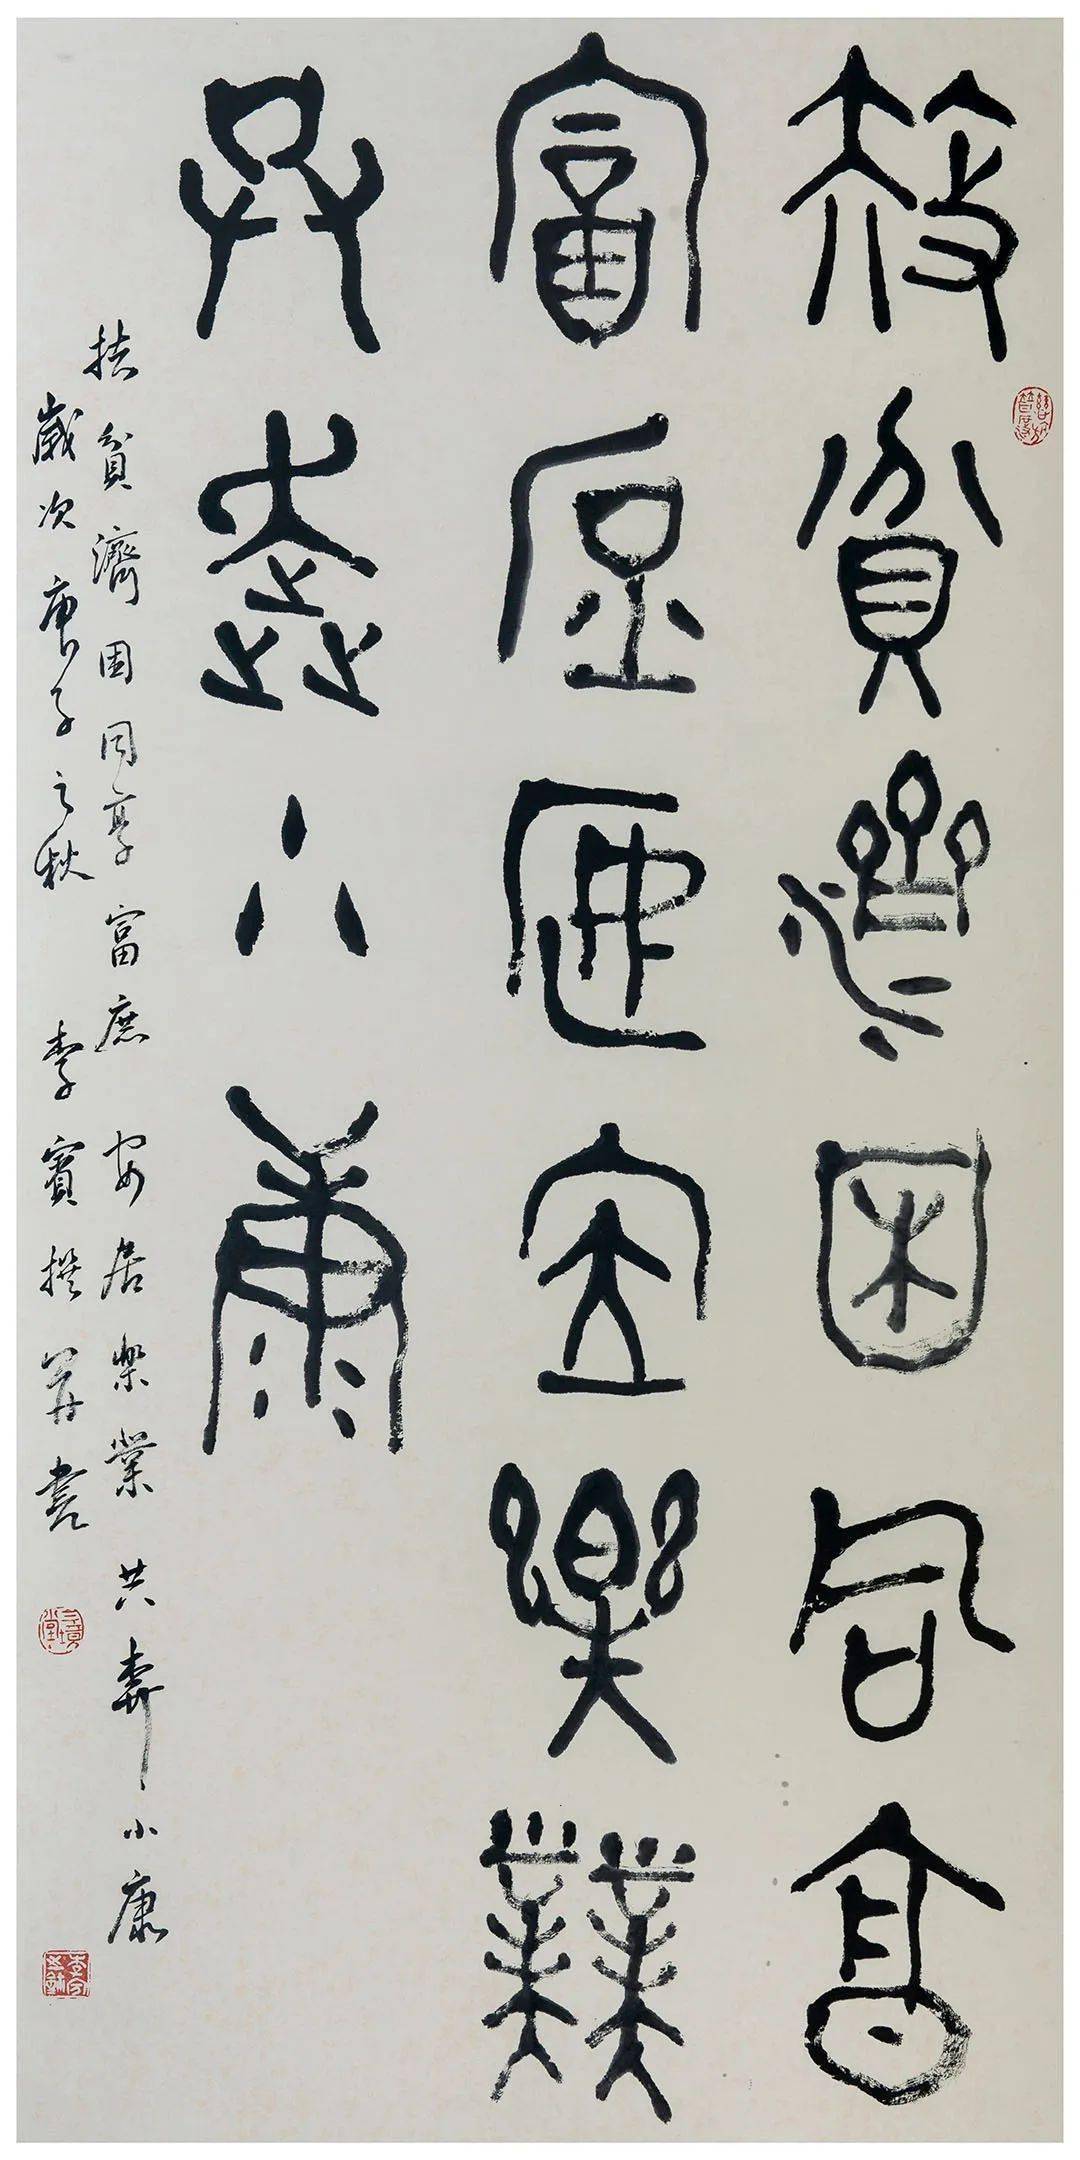 扶貧濟困同享
富庶安居樂業
共奔小康
扶貧濟困同享富庶安居樂業共奔小康
歲次庚子之秋 李賓撰并書